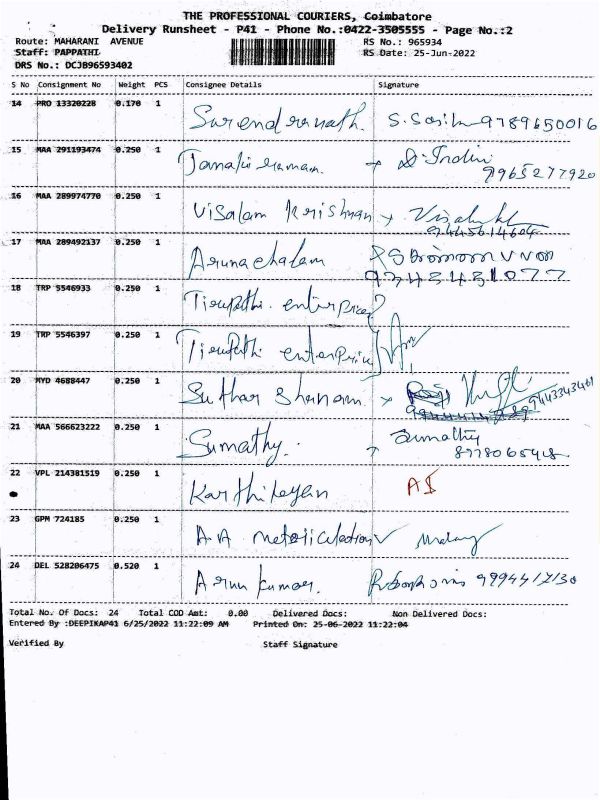 THE PROFESSIONAL COURIERS, Coimbatore
Delivery Runsheet - P41 - Phone No.:0422-3505555 - Page No.:2
Route: MAHARANI AVENUE RS No.: 965934
Staff: PAPPATHI RS Date: 25-Jun-2022
DRS No.: DCJB96593402
S No Consignment No Weight PCS Consignee Details Signature
14 PRO 13320228 0.170 1 Surendranath. 9789650016
15 MAA 291193474 0.250 1 Janakiraman. 9965277920
16 MAA 289974770 0.250 1 Visalam Krishnan
9445614604
17 MAA 289492137 0.250 1 Arunachalam
18 TRP 5546933 0.250 1 Tirupathi enterprices
19 TRP 5546397 0.250 1 Tirupathi enterprices
20 MYD 4688447 0.250 1 Suthar
21 MAA 566623222 0.250 1 Sumathy. Sumathy
22 VPL 214381519 0.250 1 Karthikeyan
23 GPM 724185 0.250 1 AA
24 DEL 528206475 0.520 1 Arun kumar.
Total No. Of Docs: 24 Total COD Amt: 0.00 Delivered Docs: Non Delivered Docs:
Entered By :DEEPIKAP41 6/25/2022 11:22:09 AM Printed On: 25-06-2022 11:22:04
Verified By Staff Signature